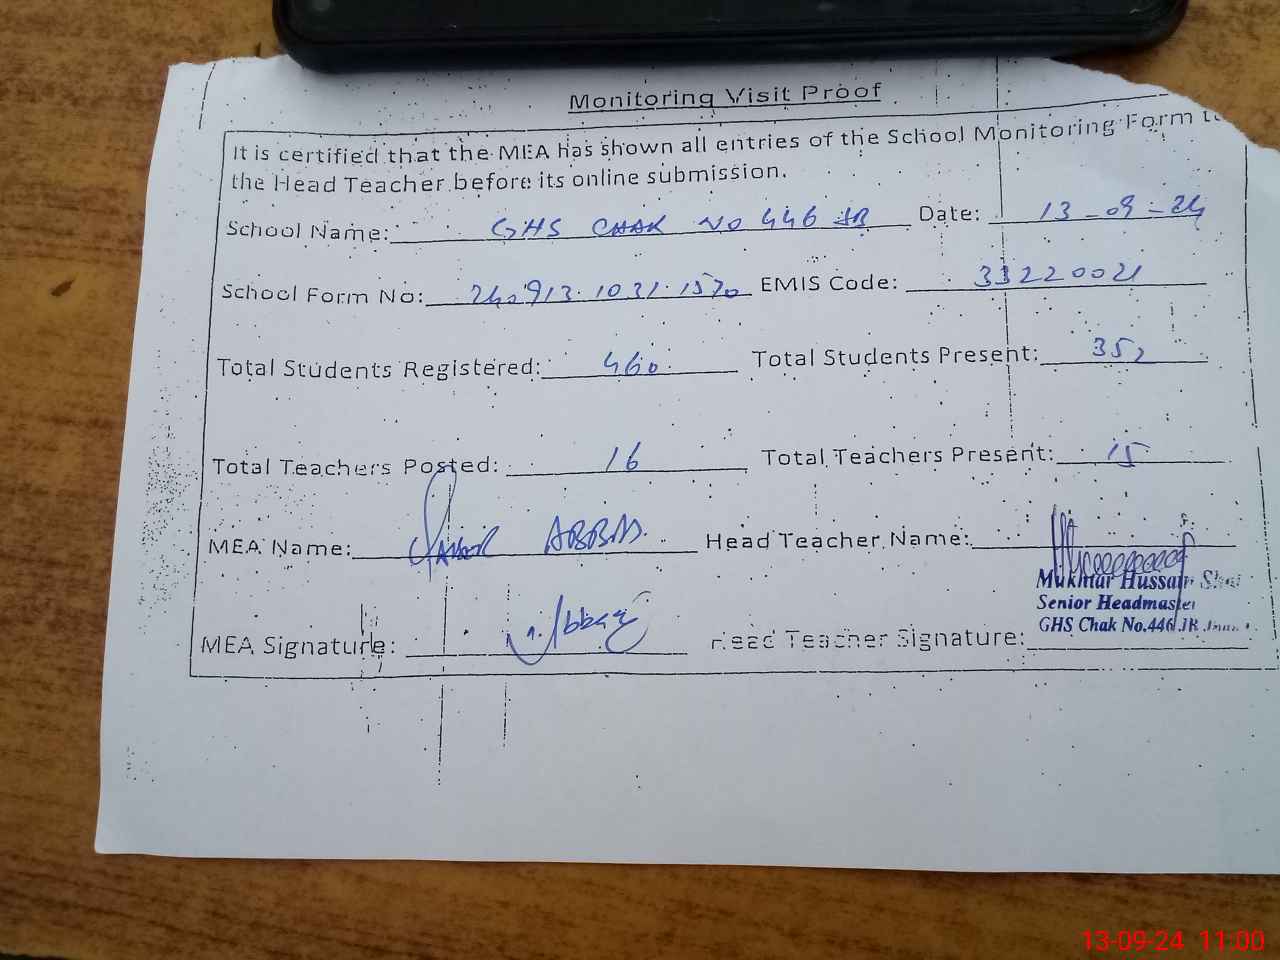 Monitoring Visit Proof
It is certified that the MEA has shown all entries of the School Monitoring Form to
the Head Teacher before its online submission.
School Name: GHS CHAK NO 446 JB Date: 13-09-24
School Form No: 240913.1031.1570 EMIS Code: 33220021
Total Students Registered: 460 Total Students Present: 352
Total Teachers Posted: 16 Total Teachers Present: 15
MEA Name: ABBAS Head Teacher Name:
Mukhtar Hussain
Senior Headmaster
GHS Chak No.446 JB
MEA Signature: Head Teacher Signature:
13-09-24 11:00